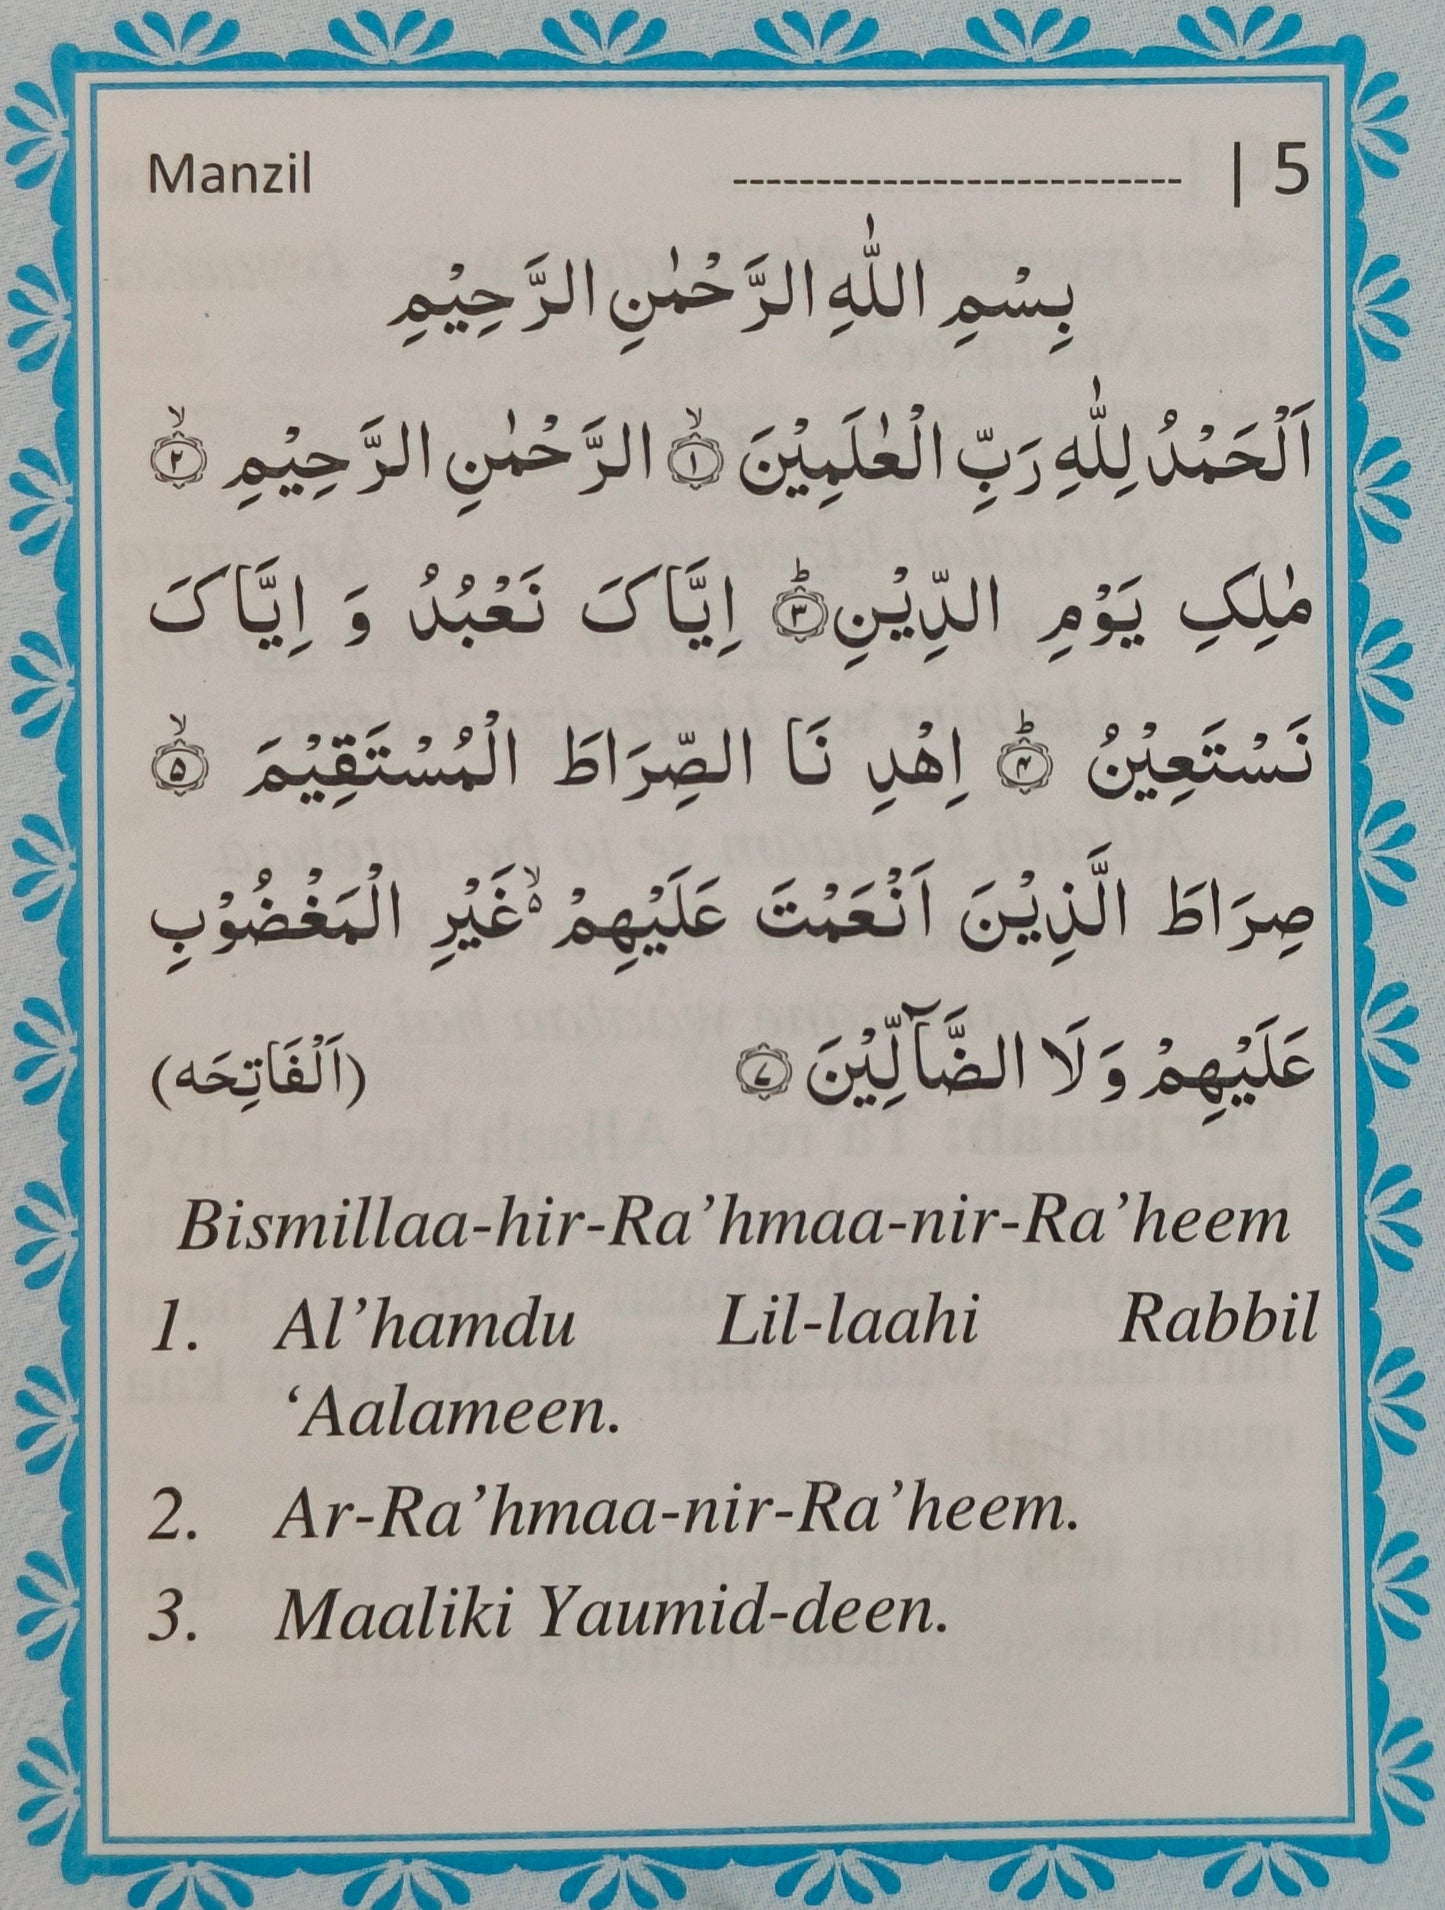 Manzil --------------------------- | 5
بِسْمِ اللّٰهِ الرَّحْمٰنِ الرَّحِيْمِ
اَلْحَمْدُ لِلّٰهِ رَبِّ الْعٰلَمِيْنَ ۙ﴿۱﴾ الرَّحْمٰنِ الرَّحِيْمِ ۙ﴿۲﴾
مٰلِکِ يَوْمِ الدِّيْنِ ؕ﴿۳﴾ اِيَّاکَ نَعْبُدُ وَ اِيَّاکَ
نَسْتَعِيْنُ ؕ﴿۴﴾ اِهْدِ نَا الصِّرَاطَ الْمُسْتَقِيْمَ ۙ﴿۵﴾
صِرَاطَ الَّذِيْنَ اَنْعَمْتَ عَلَيْهِمْ ۙ۵ غَيْرِ الْمَغْضُوْبِ
عَلَيْهِمْ وَلَا الضَّآلِّيْنَ ﴿۷﴾ (اَلْفَاتِحَه)
Bismillaa-hir-Ra’hmaa-nir-Ra’heem
1. Al’hamdu Lil-laahi Rabbil
‘Aalameen.
2. Ar-Ra’hmaa-nir-Ra’heem.
3. Maaliki Yaumid-deen.